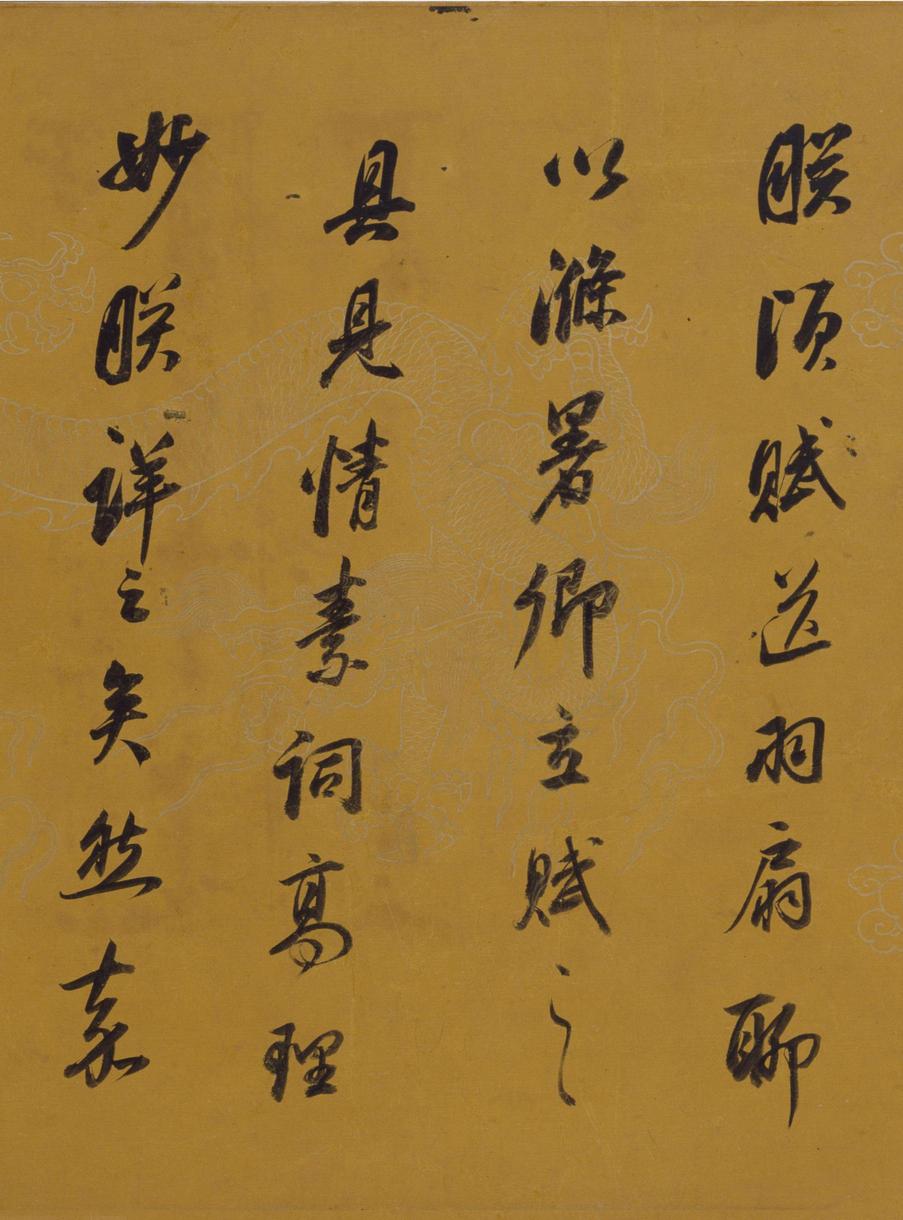 朕頃賦送羽扇聊
以滌暑卿立賦之
具見情素詞高理
妙朕詳之矣然